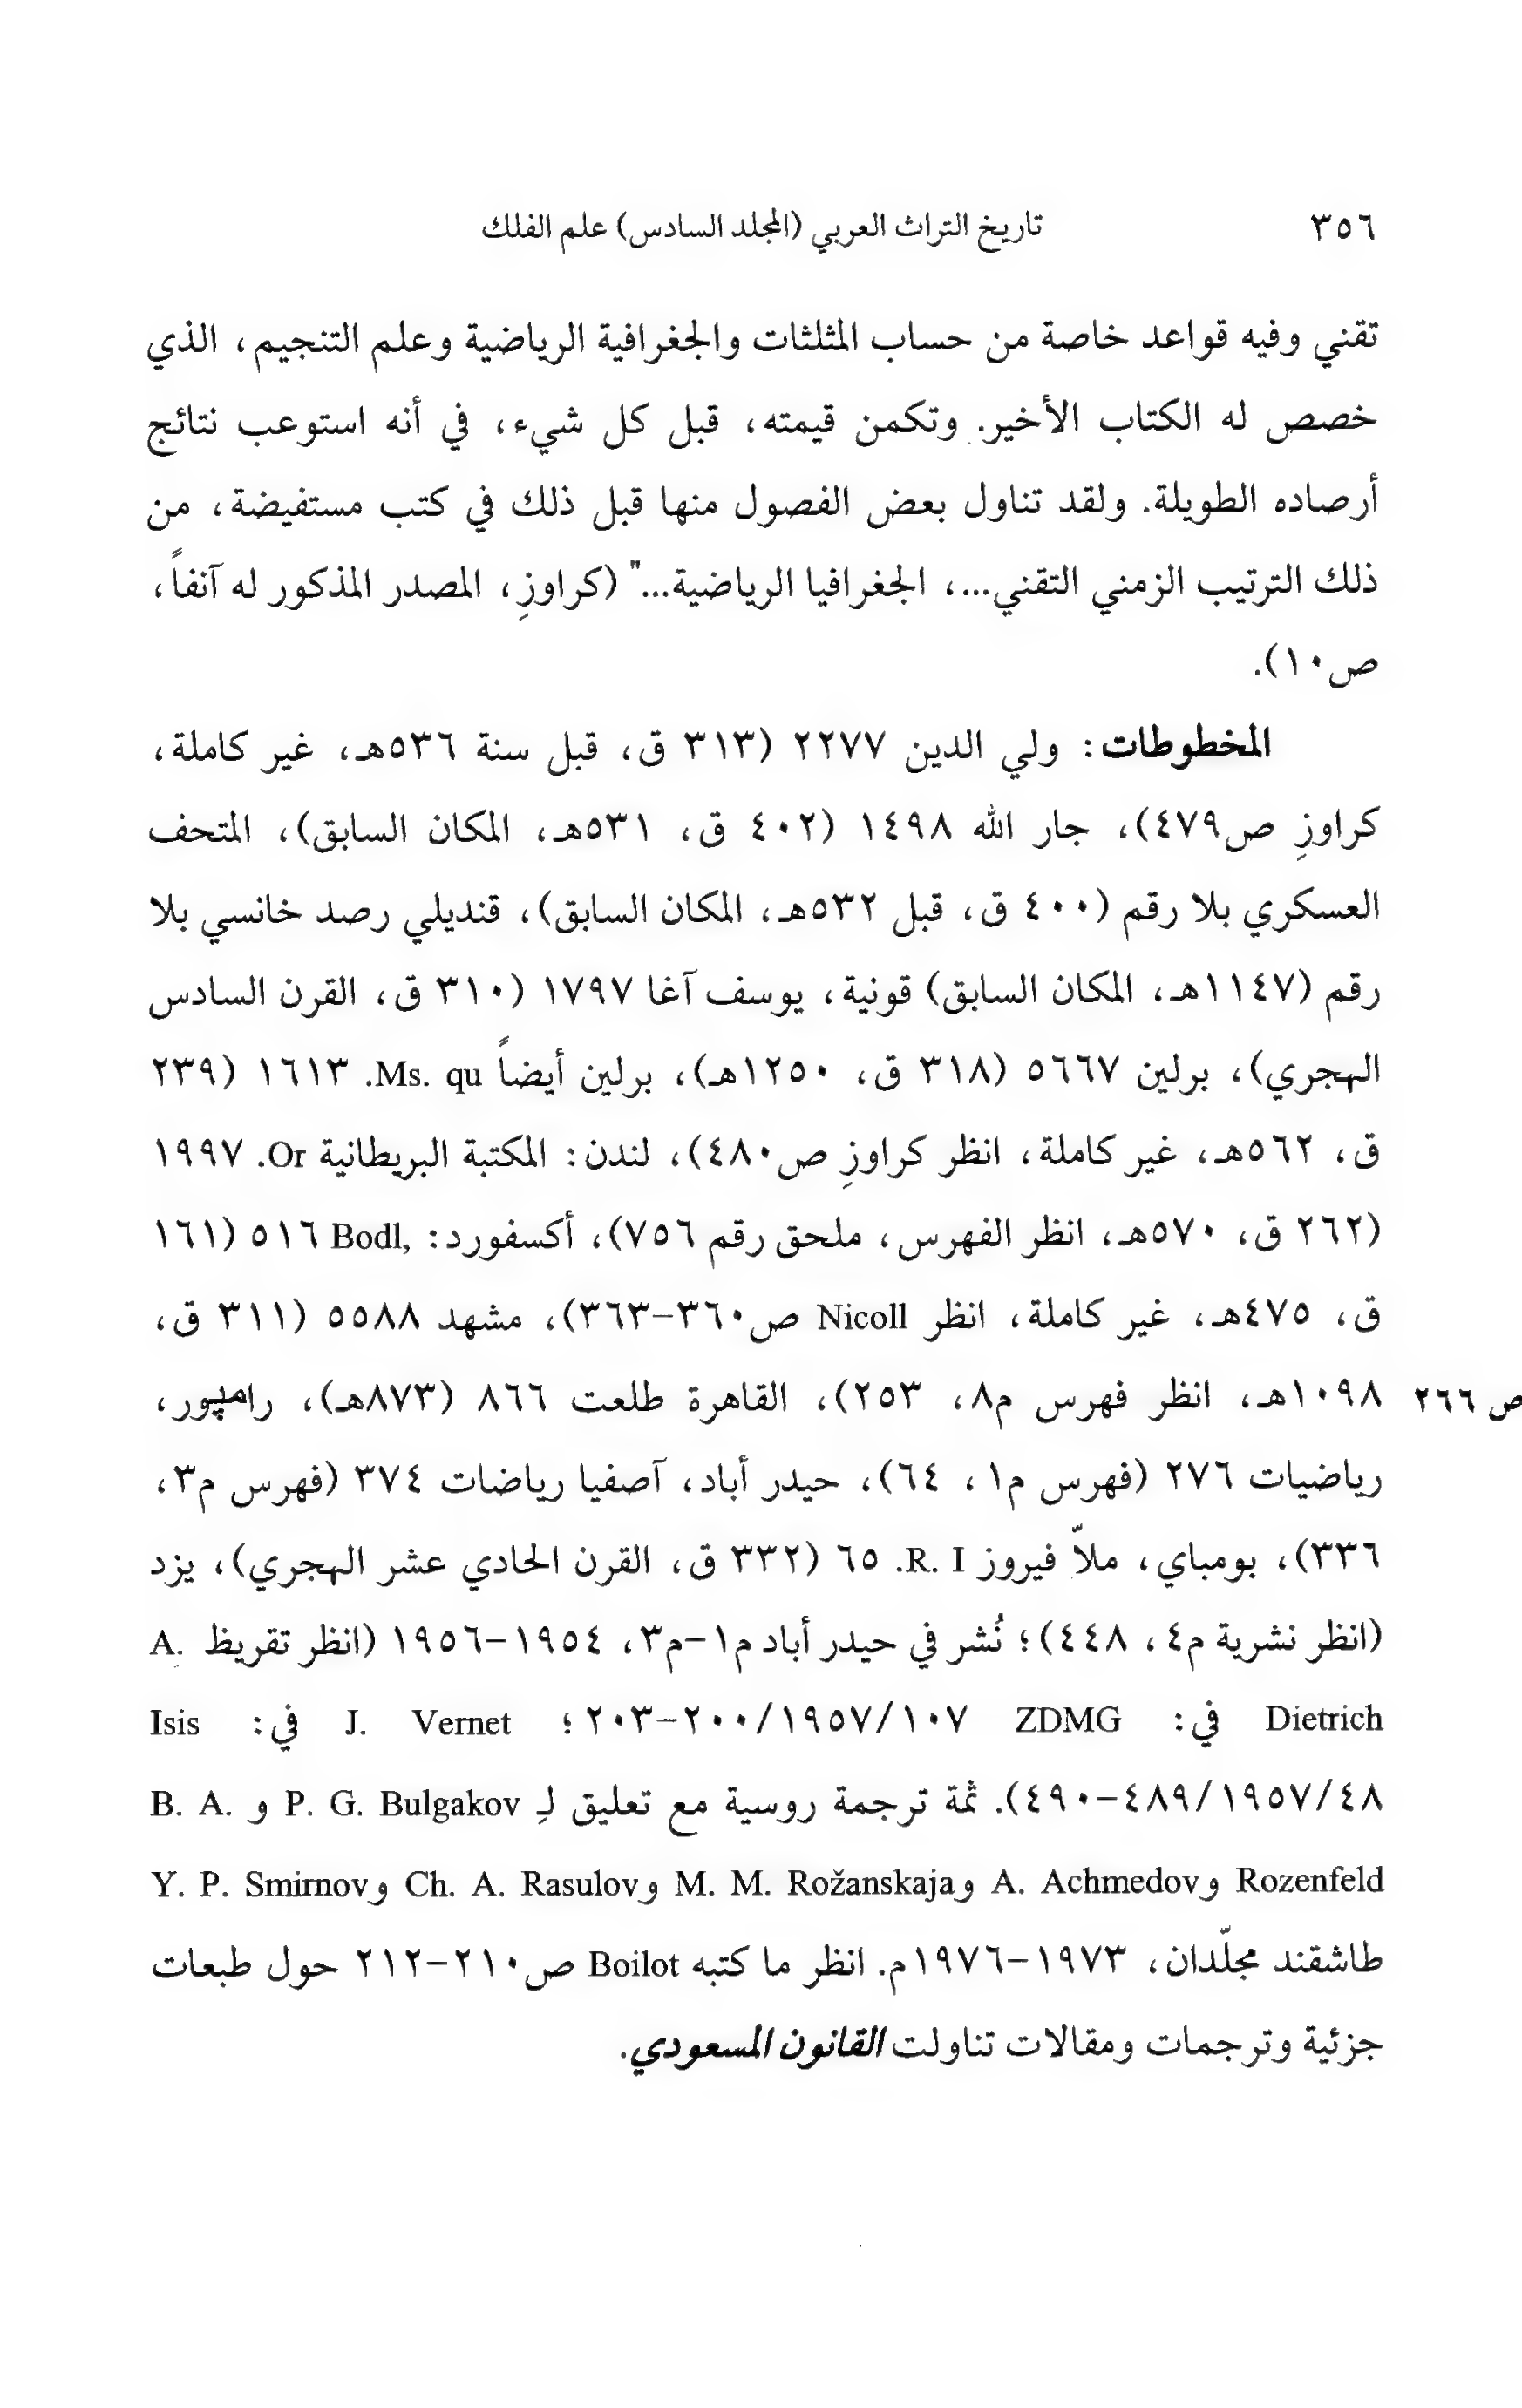 ٣٥٦ تاريخ التراث العربي (المجلد السادس) علم الفلك
تقني وفيه قواعد خاصة من حساب المثلثات والجغرافية الرياضية وعلم التنجيم، الذي
خصص له الكتاب الأخير. وتكمن قيمته، قبل كل شيء، في أنه استوعب نتائج
أرصاده الطويلة. ولقد تناول بعض الفصول منها قبل ذلك في كتب مستفيضة، من
ذلك الترتيب الزمني التقني...، الجغرافيا الرياضية..." (كراوزِ، المصدر المذكور له آنفاً،
ص١٠).
المخطوطات: ولي الدين ٢٢٧٧ (٣١٣ ق، قبل سنة ٥٣٦هـ، غير كاملة،
كراوزِ ص٤٧٩)، جار الله ١٤٩٨ (٤٠٢ ق، ٥٣١هـ، المكان السابق)، المتحف
العسكري بلا رقم (٤٠٠ ق، قبل ٥٣٢هـ، المكان السابق)، قنديلي رصد خانسي بلا
رقم (١١٤٧هـ، المكان السابق) قونية، يوسف آغا ١٧٩٧ (٣١٠ ق، القرن السادس
الهجري)، برلين ٥٦٦٧ (٣١٨ ق، ١٢٥٠هـ)، برلين أيضاً Ms. qu. ١٦١٣ (٢٣٩
ق، ٥٦٢هـ، غير كاملة، انظر كراوزِ ص٤٨٠)، لندن: المكتبة البريطانية Or. ١٩٩٧
(٢٦٢ ق، ٥٧٠هـ، انظر الفهرس، ملحق رقم ٧٥٦)، أكسفورد: Bodl, ٥١٦ (١٦١
ق، ٤٧٥هـ، غير كاملة، انظر Nicoll ص٣٦٠-٣٦٣)، مشهد ٥٥٨٨ (٣١١ ق،
ص ٢٦٦ ١٠٩٨هـ، انظر فهرس م٨، ٢٥٣)، القاهرة طلعت ٨٦٦ (٨٧٣هـ)، رامپور،
رياضيات ٢٧٦ (فهرس م١، ٦٤)، حيدر أباد، آصفيا رياضات ٣٧٤ (فهرس م٣،
٣٣٦)، بومباي، ملاّ فيروز R. I. ٦٥ (٣٣٢ ق، القرن الحادي عشر الهجري)، يزد
(انظر نشرية م٤، ٤٤٨)؛ نُشر في حيدر أباد م١-م٣، ١٩٥٤-١٩٥٦ (انظر تقريظ A.
Dietrich في: ZDMG ١٠٧/١٩٥٧/٢٠٠-٢٠٣؛ J. Vernet في: Isis
٤٨/١٩٥٧/٤٨٩-٤٩٠). ثمة ترجمة روسية مع تعليق لِـ P. G. Bulgakov و B. A.
Rozenfeld وA. Achmedov وM. M. Rožanskaja وCh. A. Rasulov وY. P. Smirnov
طاشقند مجلّدان، ١٩٧٣-١٩٧٦م. انظر ما كتبه Boilot ص٢١٠-٢١٢ حول طبعات
جزئية وترجمات ومقالات تناولت القانون المسعودي.